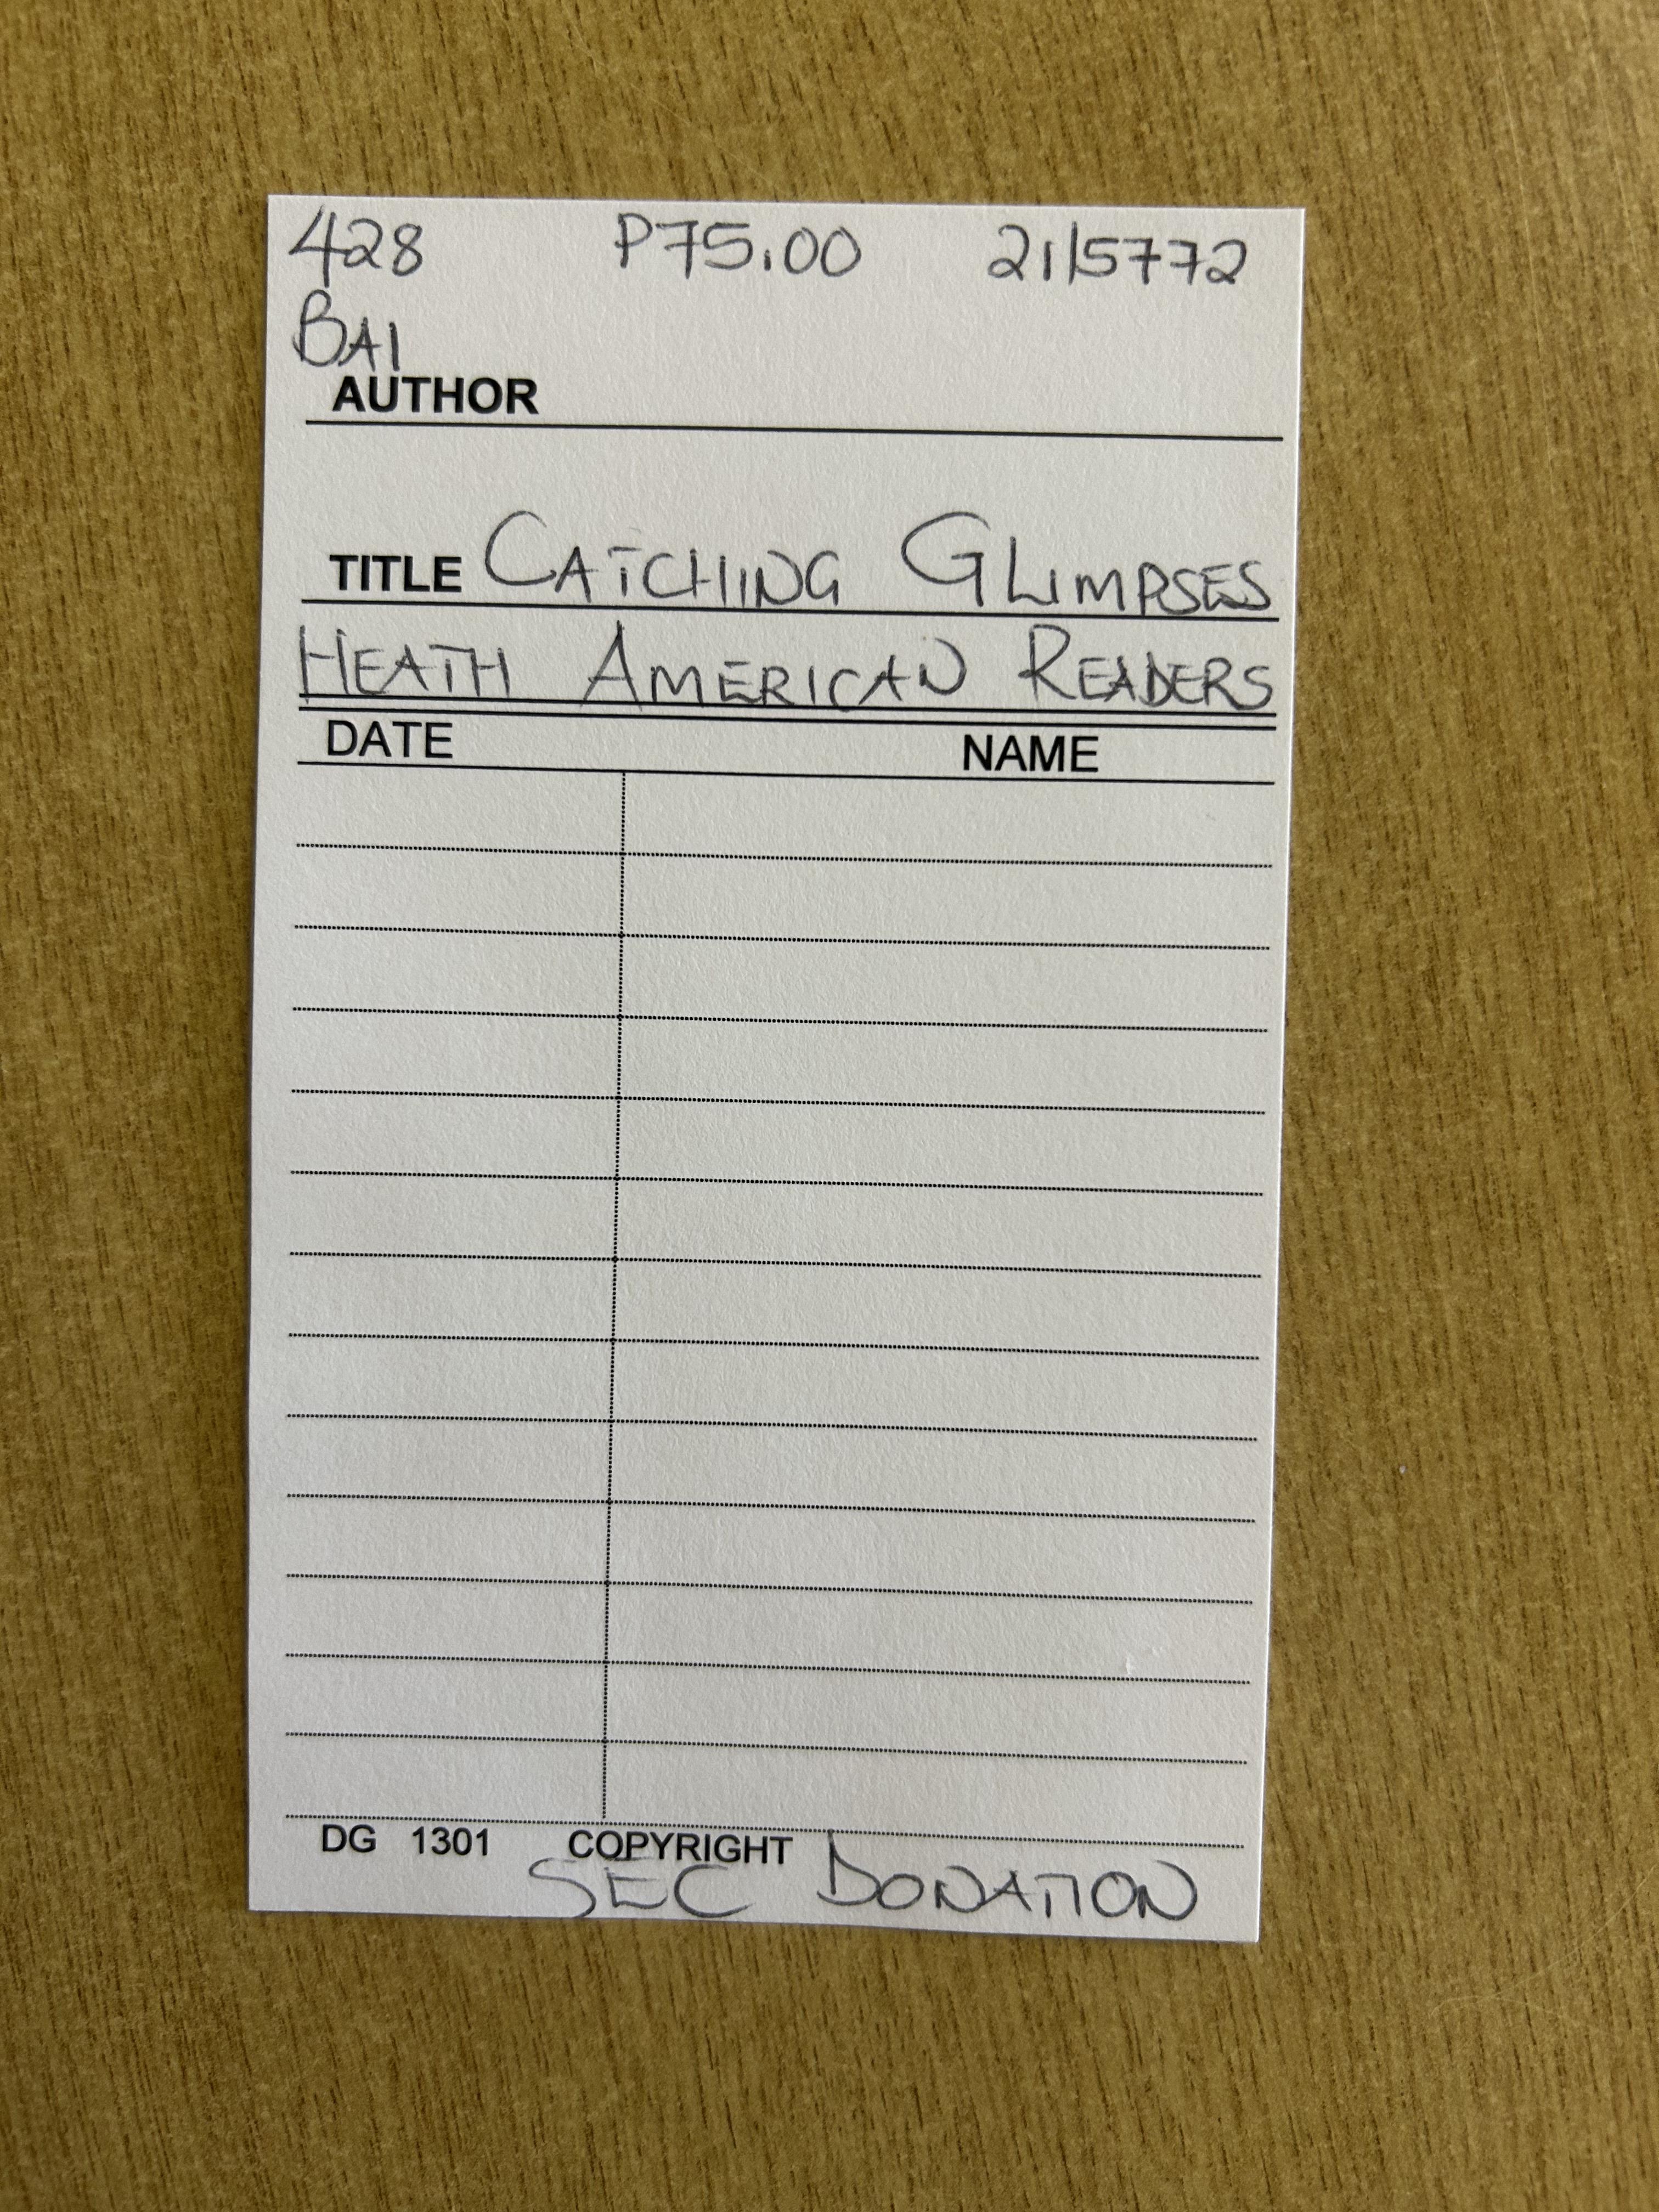 428 P75.00 21/5772
BAI
AUTHOR
TITLE CATCHING GLIMPSES
HEATH AMERICAN READERS
DATE NAME
DG 1301 COPYRIGHT
SEC DONATION